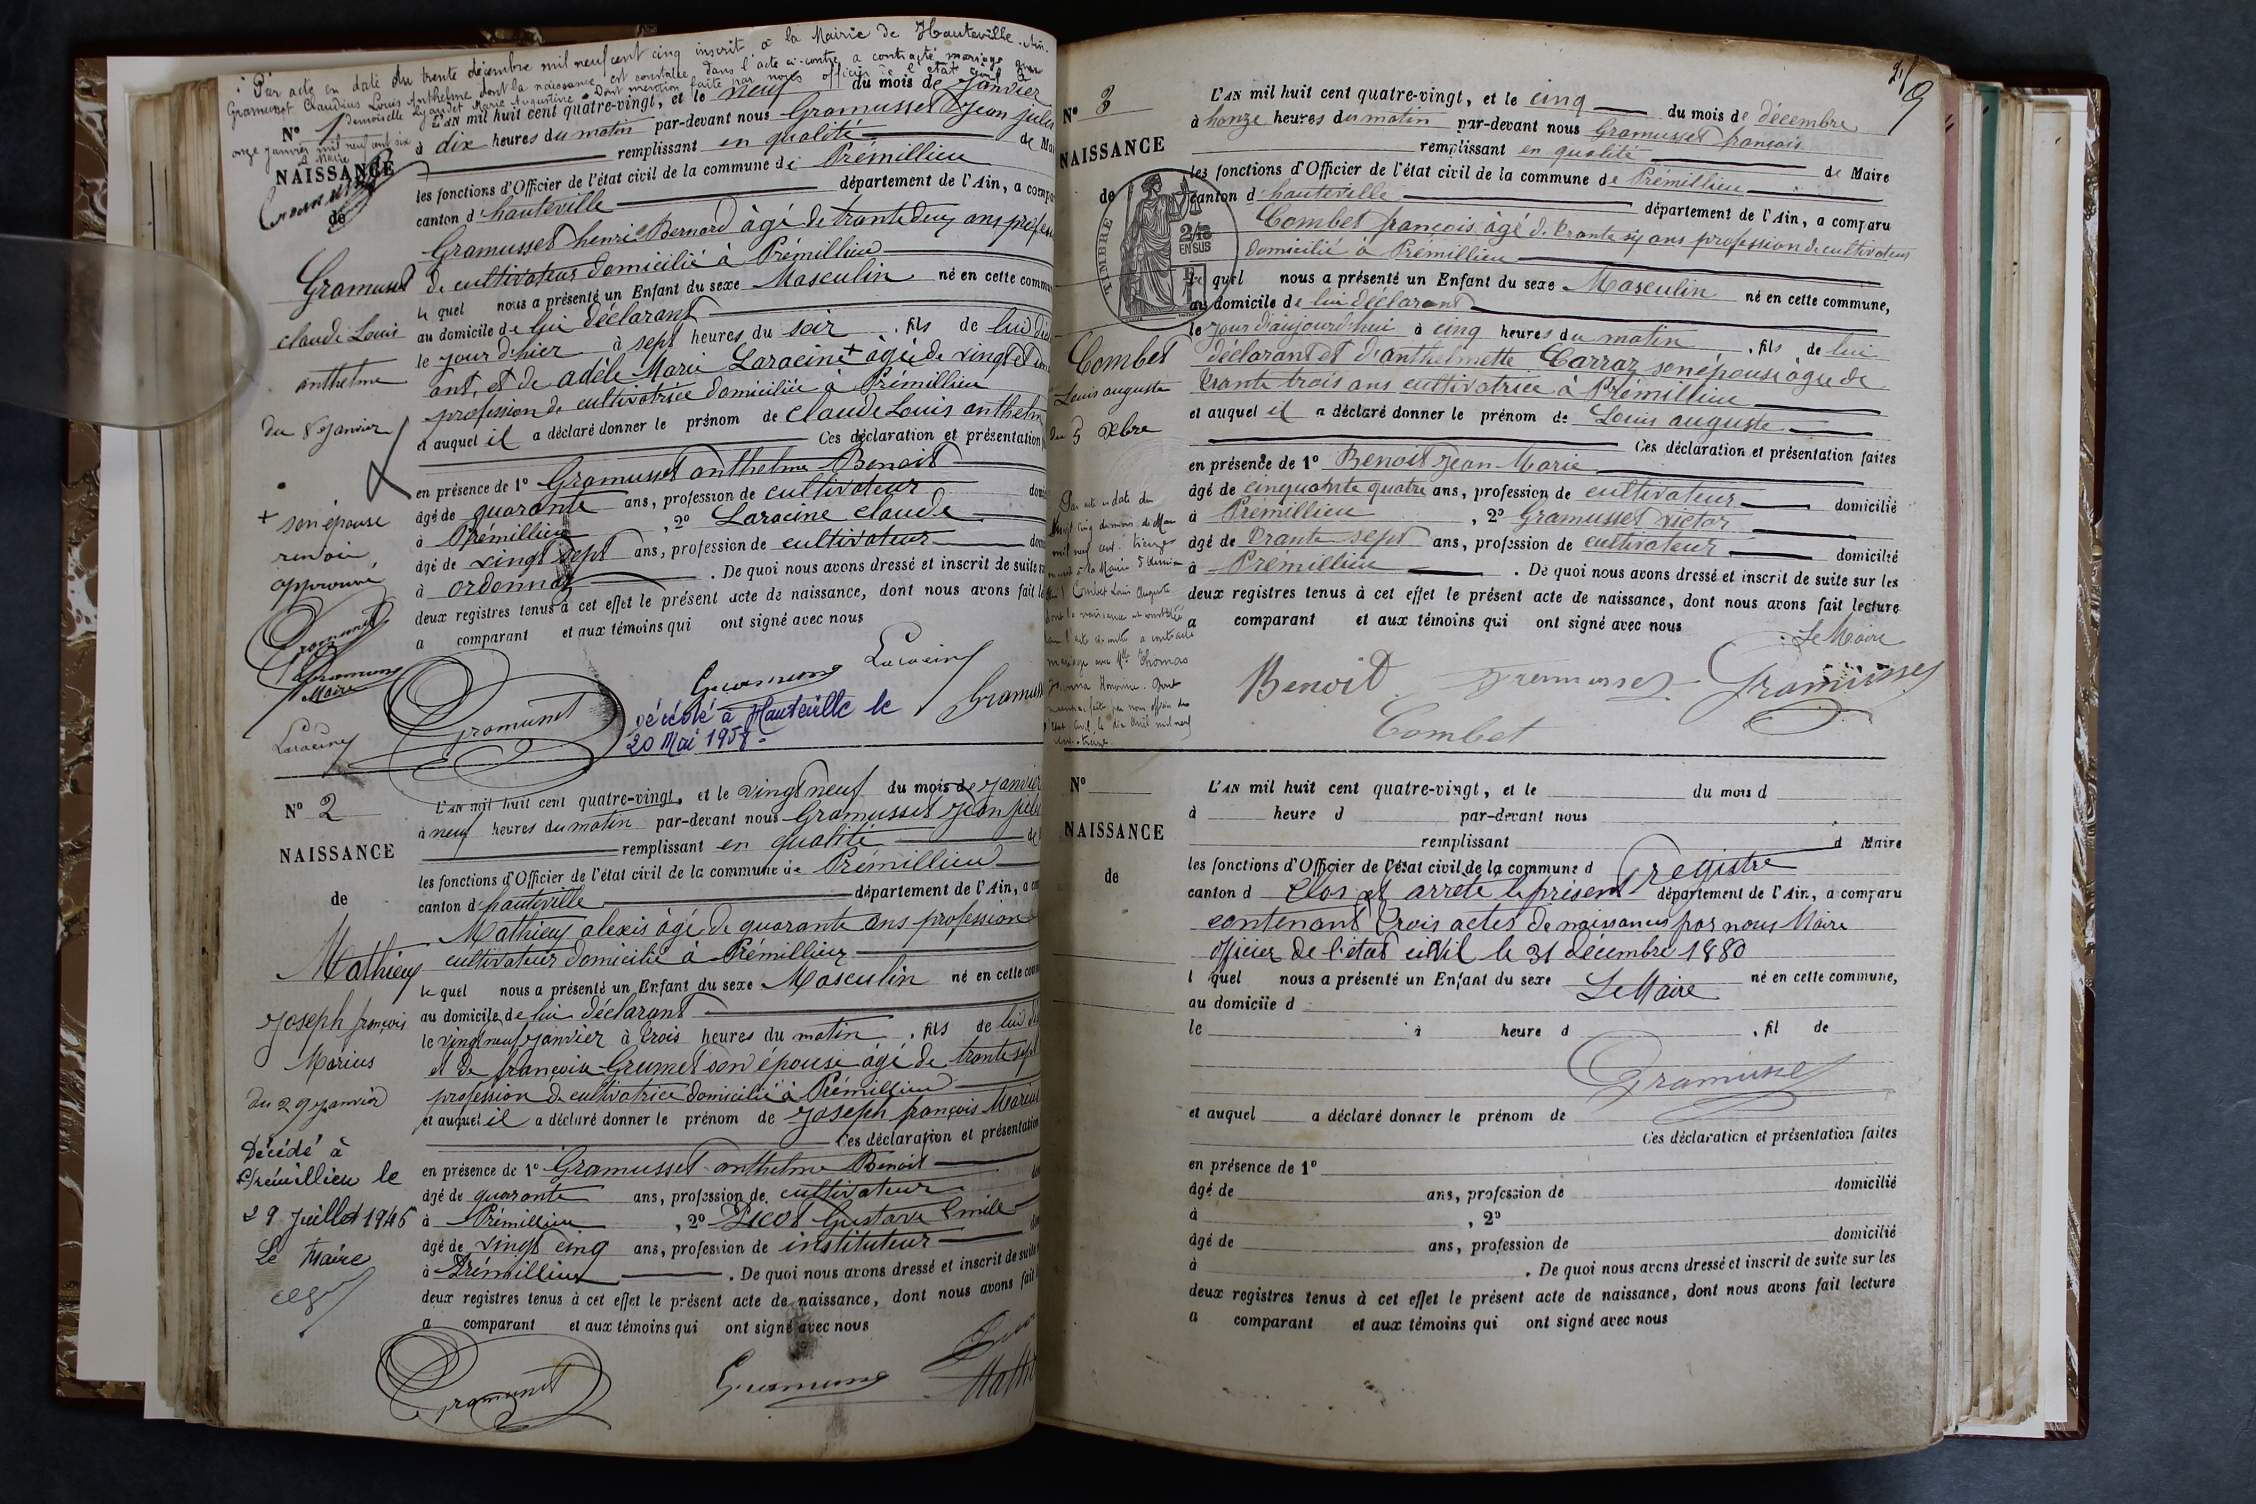 Par acte en date du trente décembre mil neuf cent cinq inscrit à la Mairie de Hauteville. Ain.
Gramusset Claudius Louis Anthelme dont la naissance est constatée dans l'acte ci-contre a contracté mariage avec
demoiselle Marie Augustine. Dont mention faite par nous officier de l'état civil le
onze janvier mil neuf cent six
Le Maire
Nº 1
NAISSANCE
de
Gramusset
claude Louis
anthelme
du 8 janvier
+ son épouse
renvoi
approuvé
Gramusset
Gramusset
Maire
Laracine
L'AN mil huit cent quatre-vingt, et le neuf du mois de Janvier
à dix heures du matin par-devant nous Gramusset Jean jules
remplissant en qualité de Ma
les fonctions d'Officier de l'état civil de la commune de Prémillieu
canton d'hauteville département de l'Ain, a compa
Gramusset henri Bernard âgé de trante deux ans profess
de cultivateur domicilié à Prémillieu
le quel nous a présenté un Enfant du sexe Masculin né en cette commu
au domicile de lui déclarant
le jour d'hier à sept heures du soir, fils de lui décl
ant, et de adèle Marie Laracine + âgée de vingt et un
profession de cultivatrice domiciliée à Prémillieu
et auquel il a déclaré donner le prénom de claude Louis anthelm
Ces déclaration et présentation
en présence de 1º Gramusset anthelme Benoit
âgé de quarante ans, profession de cultivateur domi
à Prémillieu, 2º Laracine claude
âgé de vingt sept ans, profession de cultivateur dom
à ordonnaz. De quoi nous avons dressé et inscrit de suite su
deux registres tenus à cet effet le présent acte de naissance, dont nous avons fait le
a comparant et aux témoins qui ont signé avec nous
Laracine
Gramusset
Gramusset
Gramusset
Décédé à Hauteville le
20 Mai 1958.
Nº 2
NAISSANCE
de
Mathieu
Joseph françois
Marius
du 29 janvier
Décédé à
Prémillieu le
29 Juillet 1946
Le Maire
L'AN mil huit cent quatre-vingt, et le vingt neuf du mois de Janvier
à neuf heures du matin par-devant nous Gramusset Jean jules
remplissant en qualité de
les fonctions d'Officier de l'état civil de la commune de Prémillieu
canton d'hauteville département de l'Ain, a com
Mathieu alexis âgé de quarante ans profession
cultivateur domicilié à Prémillieu
le quel nous a présenté un Enfant du sexe Masculin né en cette com
au domicile de lui déclarant
le vingt neuf janvier à trois heures du matin, fils de lui dé
et de françoise Grumet son épouse âgé de trante sept
profession de cultivatrice domiciliée à Prémillieu
et auquel il a déclaré donner le prénom de Joseph françois Marius
Ces déclaration et présentation
en présence de 1º Gramusset anthelme Benoit
âgé de quarante ans, profession de cultivateur
à Prémillieu, 2º Picot Gustave Emile
âgé de vingt cinq ans, profession de instituteur
à Prémillieu. De quoi nous avons dressé et inscrit de suite
deux registres tenus à cet effet le présent acte de naissance, dont nous avons fait
a comparant et aux témoins qui ont signé avec nous
Gramusset
Gramusset
9
Nº 3
NAISSANCE
de
TIMBRE
2/10
EN SUS
Combet
Louis auguste
du 5 Xbre
Par acte en date du
vingt cinq du mois de Mars
mil neuf cent treize
Combet Louis Auguste
dont la naissance est constatée
dans l'acte ci-contre a contracté
mariage avec Mlle Thomas
Honorine. Dont
mention faite par nous officier de
l'état civil le dix Avril mil neuf
cent treize.
L'AN mil huit cent quatre-vingt, et le cinq du mois de décembre
à honze heures du matin par-devant nous Gramusset françois
remplissant en qualité de Maire
les fonctions d'Officier de l'état civil de la commune de Prémillieu
canton d'hauteville département de l'Ain, a comparu
Combet françois âgé de trante six ans profession de cultivateur
domicilié à Prémillieu
le quel nous a présenté un Enfant du sexe Masculin né en cette commune,
au domicile de lui déclarant
le jour d'aujourd'hui à cinq heures du matin, fils de lui
déclarant et d'anthelmette Carraz son épouse âgée de
trante trois ans cultivatrice à Prémillieu
et auquel il a déclaré donner le prénom de Louis auguste
Ces déclaration et présentation faites
en présence de 1º Benoit Jean Marie
âgé de cinquante quatre ans, profession de cultivateur domicilié
à Prémillieu, 2º Gramusset victor
âgé de trante sept ans, profession de cultivateur domicilié
à Prémillieu. De quoi nous avons dressé et inscrit de suite sur les
deux registres tenus à cet effet le présent acte de naissance, dont nous avons fait lecture
a comparant et aux témoins qui ont signé avec nous
Le Maire
Benoit Gramusset Gramusset
Combet
Nº
NAISSANCE
de
L'AN mil huit cent quatre-vingt, et le du mois d
à heure d par-devant nous
remplissant d Maire
les fonctions d'Officier de l'état civil de la commune d
canton d Clos et arrêté le présent registre département de l'Ain, a comparu
contenant trois actes de naissances par nous Maire
officier de l'état civil le 31 décembre 1880
l quel nous a présenté un Enfant du sexe né en cette commune,
Le Maire
au domicile d
le à heure d, fil de
Gramusset
et auquel a déclaré donner le prénom de
Ces déclaration et présentation faites
en présence de 1º
âgé de ans, profession de domicilié
à, 2º
âgé de ans, profession de domicilié
à. De quoi nous avons dressé et inscrit de suite sur les
deux registres tenus à cet effet le présent acte de naissance, dont nous avons fait lecture
a comparant et aux témoins qui ont signé avec nous